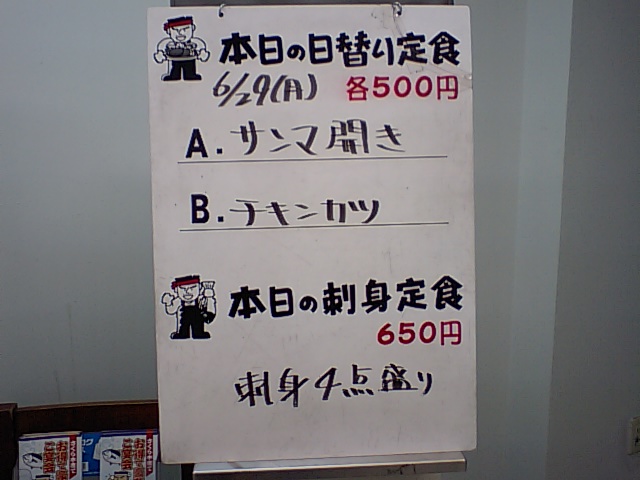 本日の日替り定食
6/29(月) 各500円
A. サンマ開き
B. チキンカツ
本日の刺身定食
650円
刺身4点盛り